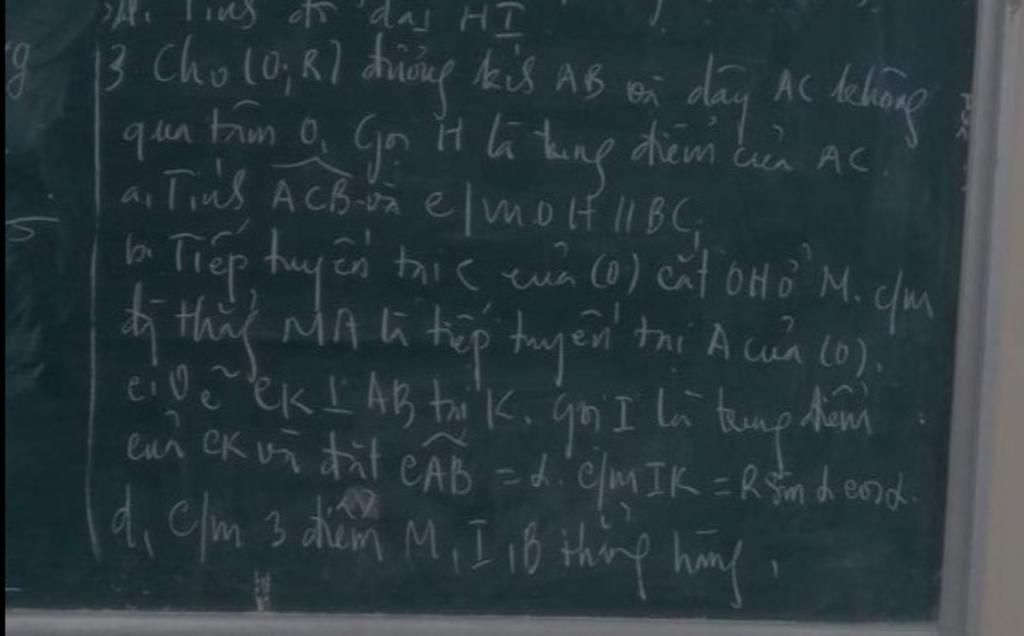 Tính độ dài HI
3 Cho (O; R) đường kís AB và dây AC không
qua tâm O. Gọi H là tung điểm của AC.
a, Tính ACB và c/m OH // BC,
b. Tiếp tuyến tại C của (O) cắt OH ở M. c/m
đg thẳng MA là tiếp tuyến tại A của (O).
c. Vẽ CK ⊥ AB tại K. gọi I là tung điểm
của CK và đặt CAB = α. C/m IK = R sin α cosα.
d, C/m 3 điểm M, I, B thẳng hàng,